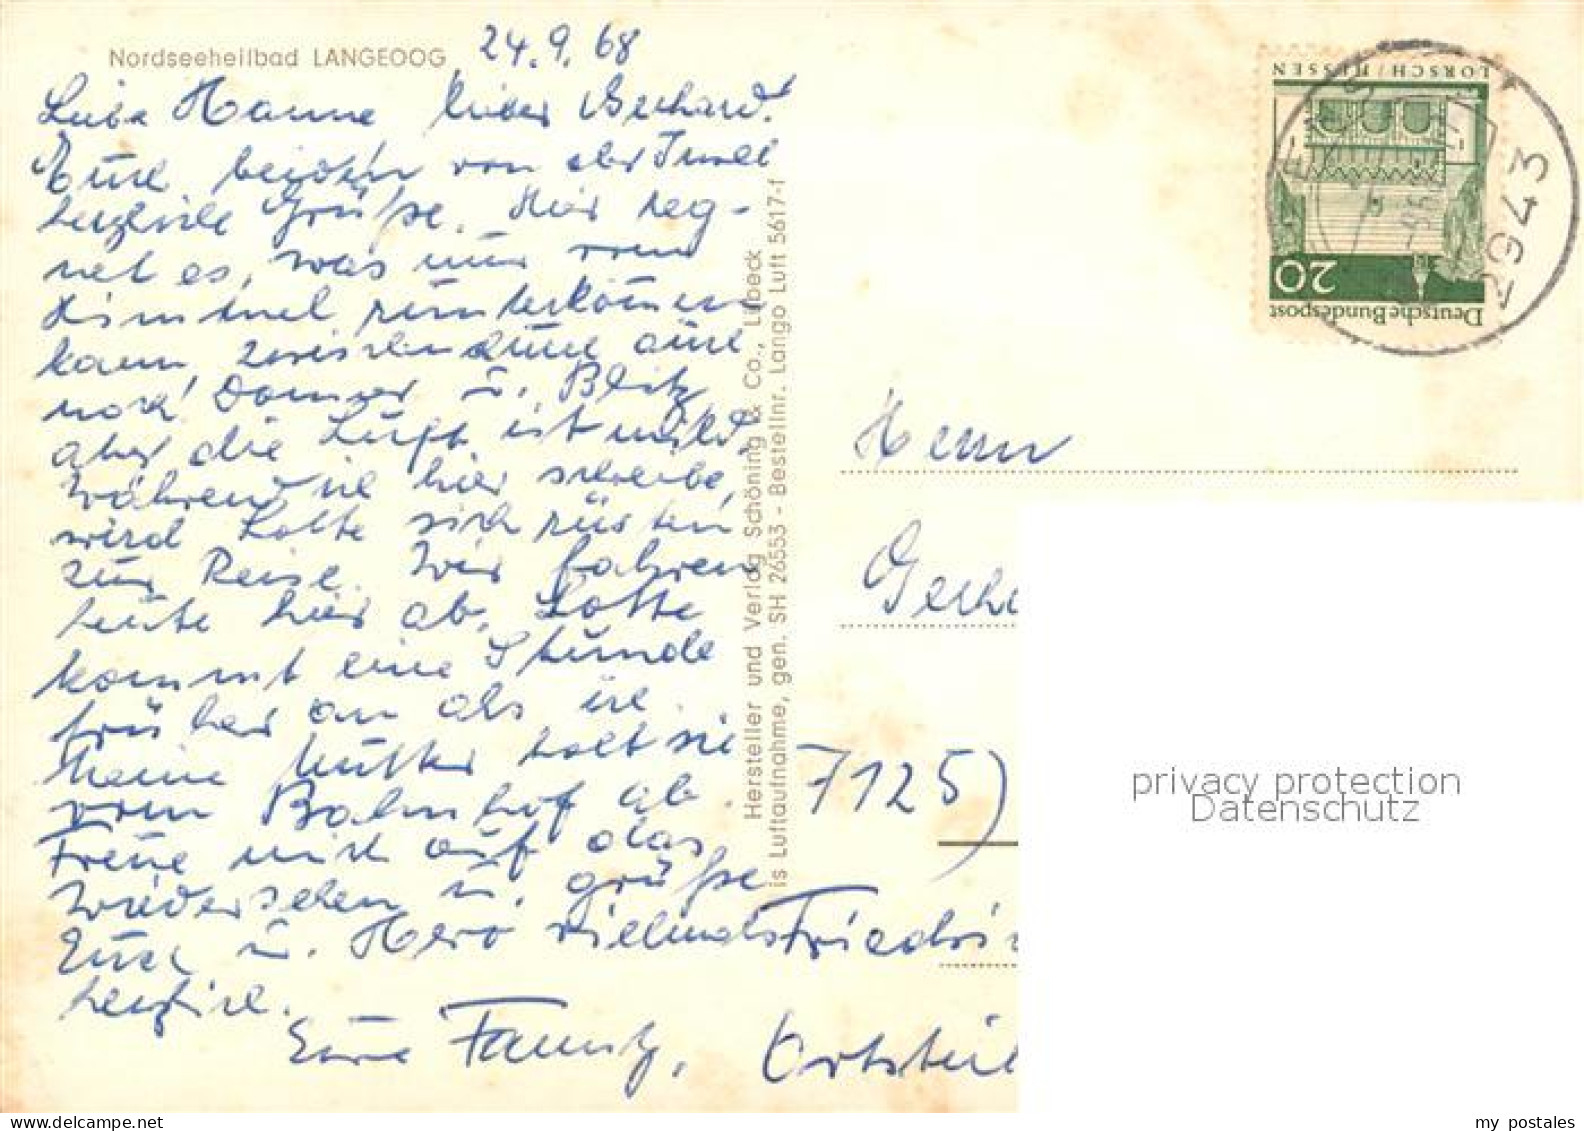 Nordseeheilbad LANGEOOG
24.9.68
Liebe Hanne lieber Gerhard!
Euch beiden von der Insel
herzliche Grüße. Hier reg-
net es, was nur vom
Himmel runterkommen
kann, zwischendurch auch
noch Donner u. Blitz,
aber die Luft ist mild.
Während ich hier schreibe,
wird Lotte sich rüsten
zur Reise. Wir fahren
heute hier ab. Lotte
kommt eine Stunde
früher an als ich.
Meine Mutter holt sie
vom Bahnhof ab.
Freue mich auf das
Wiedersehen u. grüße
Euch u. Hero vielmals
herzlich.
Eure
Hersteller und Verlag Schöning & Co., Lübeck
is Luftaufnahme, gen. SH 26553 - Bestellnr. Lango Luft 5617-f
LORSCH / HESSEN
20
Deutsche Bundespost
2943
Herrn
Gerh
7125)
Friedri
Ortsteil
privacy protection
Datenschutz
my postales